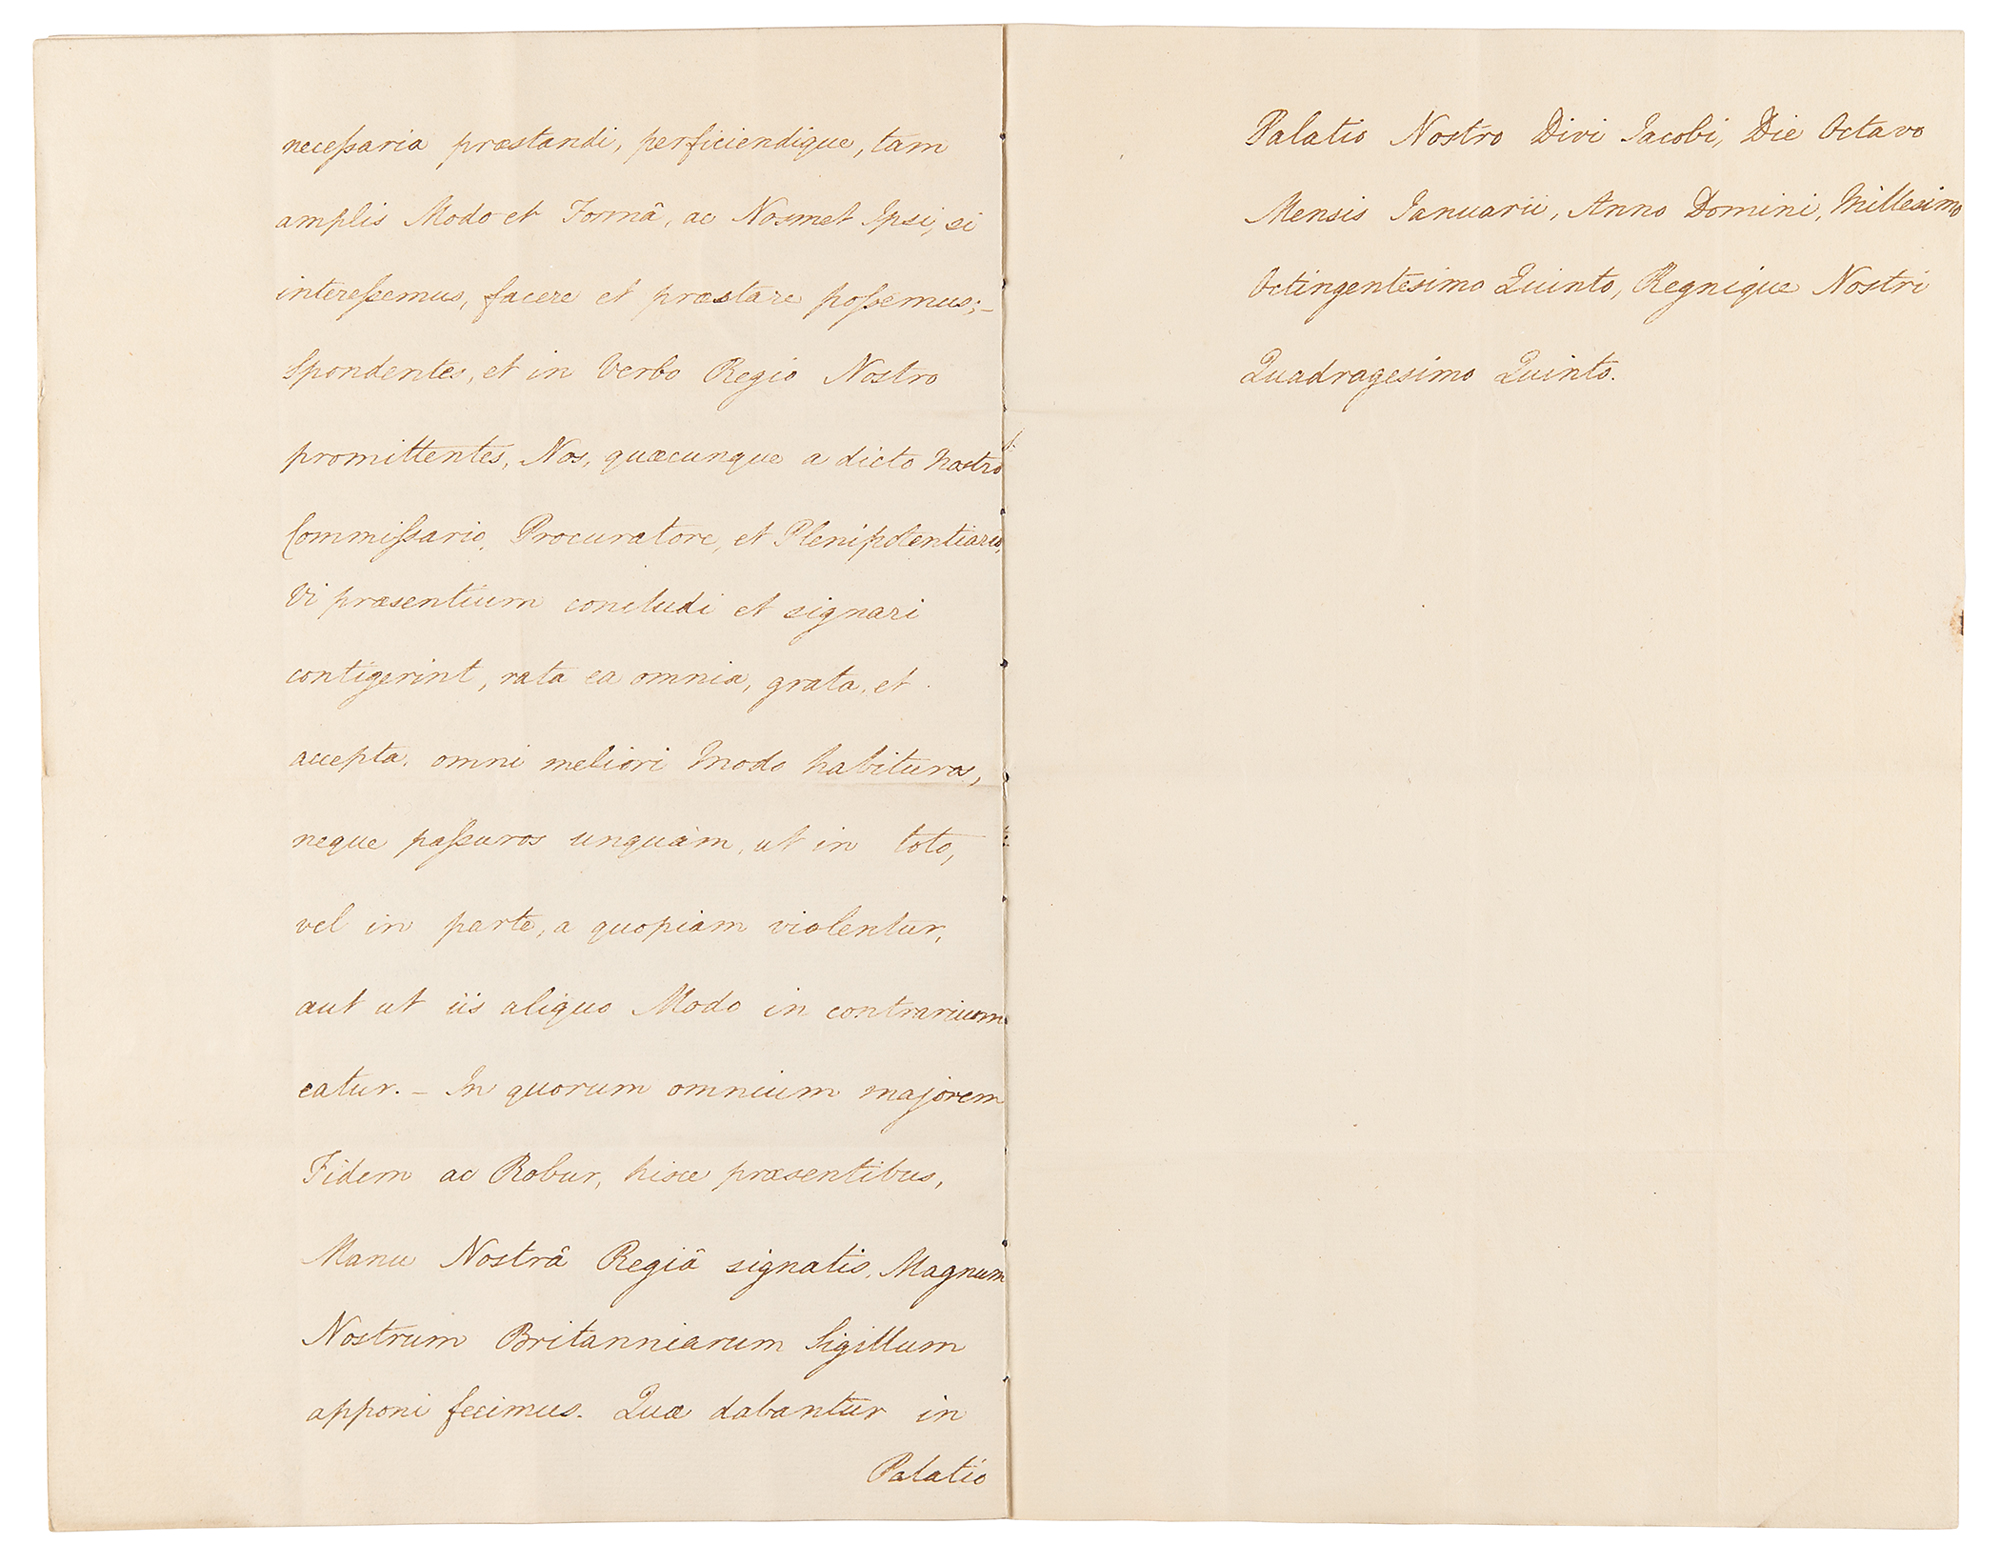 neceſsaria præstandi, perficiendique, tam
amplis Modo et Formâ, ac Nosmet Ipsi, si
intereſsemus, facere et præstare poſsemus; –
Spondentes, et in Verbo Regio Nostro
promittentes, Nos, quæcunque a dicto Nostro
Commiſsario, Procuratore, et Plenipotentiario,
Vi præsentium concludi et signari
contigerint, rata ea omnia, grata, et
accepta, omni meliori Modo habituros,
neque paſsuros unquàm, ut in toto,
vel in parte, a quopiam violentur,
aut ut iis aliquo Modo in contrarium
eatur. – In quorum omnium majorem
Fidem ac Robur, hisce præsentibus,
Manu Nostrâ Regiâ signatis, Magnum
Nostrum Britanniarum Sigillum
apponi fecimus. Quæ dabantur in
Palatio
Palatio Nostro Divi Jacobi, Die Octavo
Mensis Januarii, Anno Domini, Millesimo
Octingentesimo Quinto, Regnique Nostri
Quadragesimo Quinto.